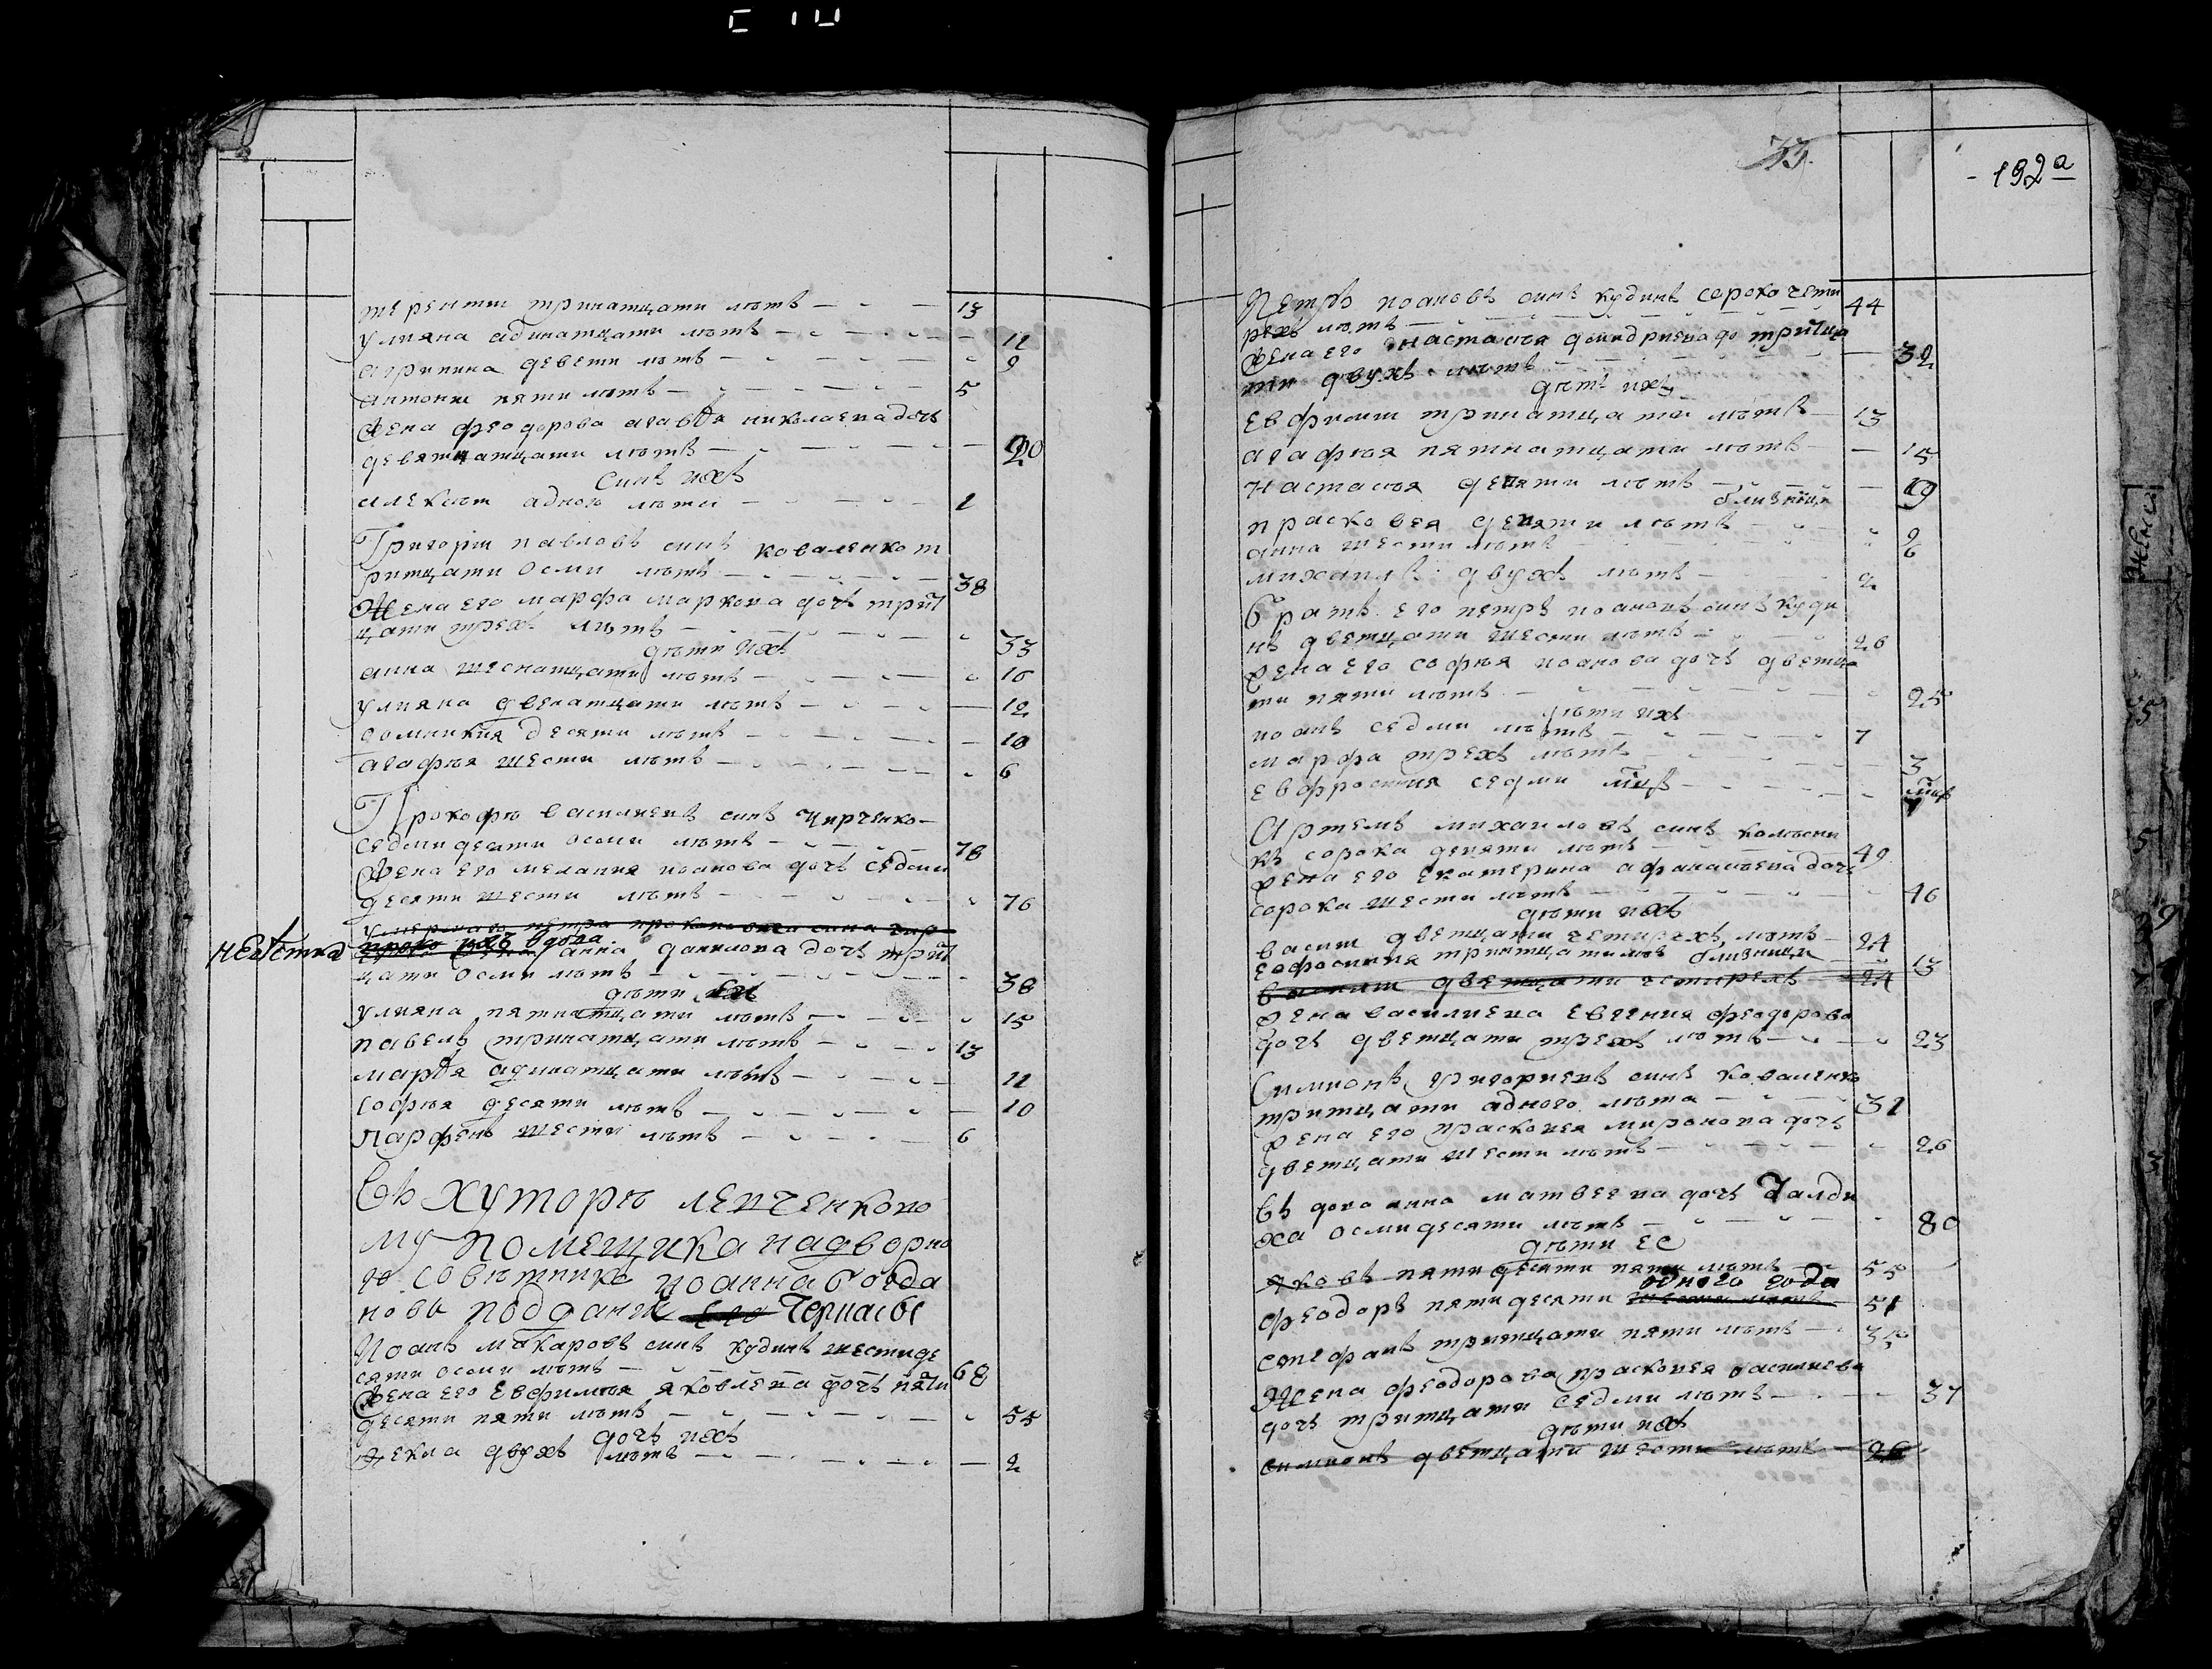 терентий тринатцати лѣтъ 13
улияна адинатцати лѣтъ 11
агрипина девети лѣтъ 9
антоний пяти лѣтъ 5
Жена феодорова агавѣя николаевна дочь
девятнатцати лѣтъ 20
Синъ ихъ
алексѣй адного лѣта 1
Григорий павловъ синъ коваленко т
ритцати осми лѣтъ 38
Жена его марфа маркова дочь трит
цати трех лѣтъ 33
дѣти ихъ
анна шеснатцати лѣтъ 16
улияна двенатцати лѣтъ 12
домникия десяти лѣтъ 10
агафѣя шести лѣтъ 6
Прокофѣ василиевъ синъ чирченко
седмидесяти осми лѣтъ 78
Жена его мелания иоанова дочь седми
десяти шести лѣтъ 76
умершаго петра прокопиевича сина чир
невѣстка ихъ вдова
анна данилова дочь трит
цати осми лѣтъ 38
дѣти
улияна пятнатцати лѣтъ 15
павелъ тринатцати лѣтъ 13
марѣя адинатцати лѣтъ 11
софѣя десяти лѣтъ 10
Парфенъ шести лѣтъ 6
Въ хуторѣ левченково
му помещика надворно
го совѣтника иоанна богда
нова поддание его Черпаєвє
Иоанъ макаровъ синъ кудинъ шестиде
сяти осми лѣтъ 68
Жена его евфимѣя яковлева дочь пяти
десяти пяти лѣтъ 55
дочь ихъ
Фекла двухъ лѣтъ 2
33
192а
Петръ иоановъ синъ кудинъ сорока чети
рехъ лѣтъ 44
Жена его настасѣя дочь тритца
ти двухъ лѣтъ 32
дѣти ихъ
евфимий тринатцати лѣтъ 13
агафѣя пятнатцати лѣтъ 15
настасѣя девяти лѣтъ 9
близници
прасковея девяти лѣтъ 9
анна шести лѣтъ 6
михаилъ двухъ лѣтъ 2
Братъ его петръ иоановъ синъ куди
нъ дветцати шести лѣтъ 26
Жена его софѣя иоанова дочь дветца
ти пяти лѣтъ 25
дѣти ихъ
иоанъ седми лѣтъ 7
марфа трехъ лѣтъ 3
евфросиния седми мцъ 7
Артемъ михаиловъ синъ колѣсни
къ сорока девяти лѣтъ 49
Жена его екатерина афанасѣева дочь
сорока шести лѣтъ 46
дѣти ихъ
василий дветцати четирехъ лѣтъ 24
евфросиния тринатцати лѣтъ близници 13
василий дветцати четирехъ 24
Жена василиева евгения феодорова
дочь дветцати трехъ лѣтъ 23
Симионъ григориевъ синъ коваленко
тритцати адного лѣта 31
Жена его прасковея миронова дочь
дветцати шести лѣтъ 26
Въдова анна матвеева дочь Халди
ха осмидесяти лѣтъ 80
дѣти ее
Яковъ пятидесяти пяти лѣтъ 55
одного года
феодоръ пятидесяти шести лѣтъ 51
стефанъ тритцати пяти лѣтъ 35
Жена феодорова прасковея василиева
дочь тритцати седми лѣтъ 37
дѣти ихъ
симионъ дветцати шести лѣтъ 26